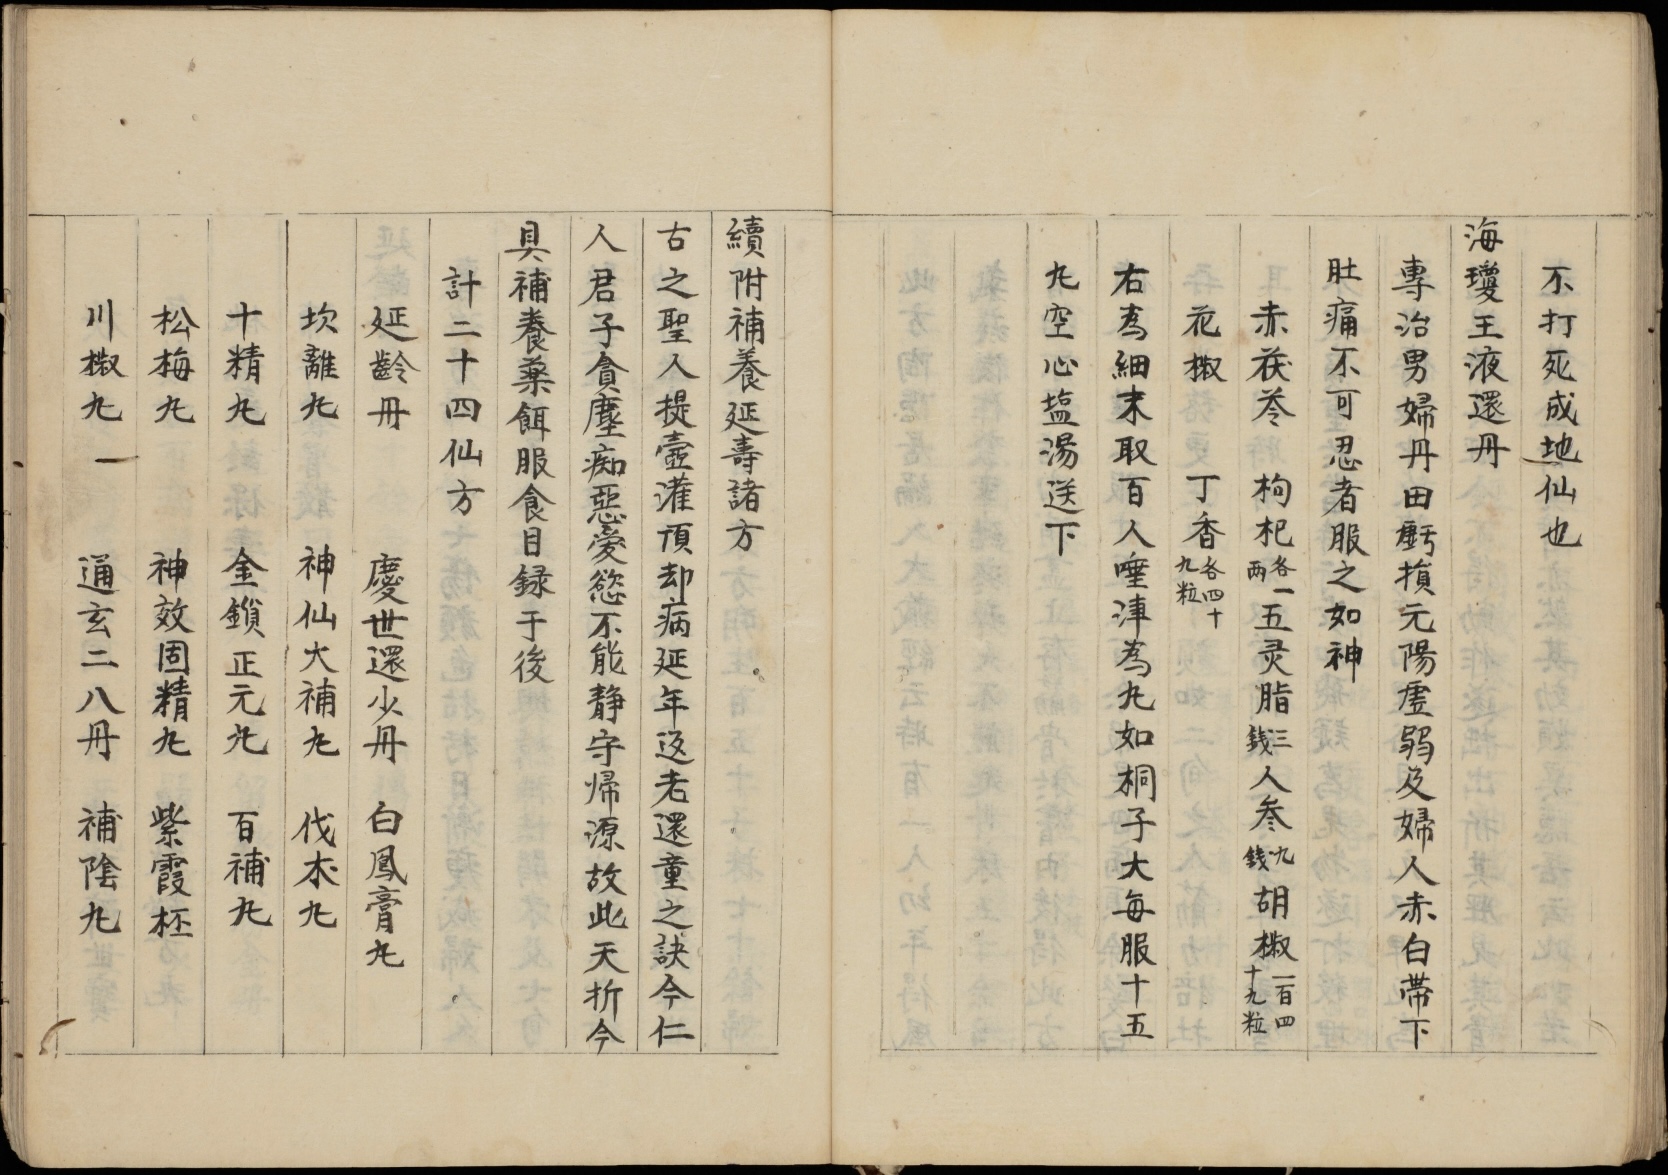 不打死成地仙也
海瓊玉液還丹
專治男婦丹田虧損元陽虛弱及婦人赤白帶下
肚痛不可忍者服之如神
赤茯苓　枸杞各一兩　五灵脂三錢　人参九錢　胡椒一百四十九粒
花椒　丁香各四十九粒
右為細末取百人唾津為丸如桐子大每服十五
丸空心塩湯送下
續附補養延壽諸方
古之聖人提壺灌頂却病延年返老還童之訣今仁
人君子貪塵痴惡愛慾不能静守帰源故此夭折今
具補養藥餌服食目録于後
計二十四仙方
延齡丹　慶世還少丹　白鳳膏丸
坎離丸　神仙大補丸　伐木丸
十精丸　金鎖正元丸　百補丸
松梅丸　神效固精丸　紫霞杯
川椒丸　通玄二八丹　補陰丸